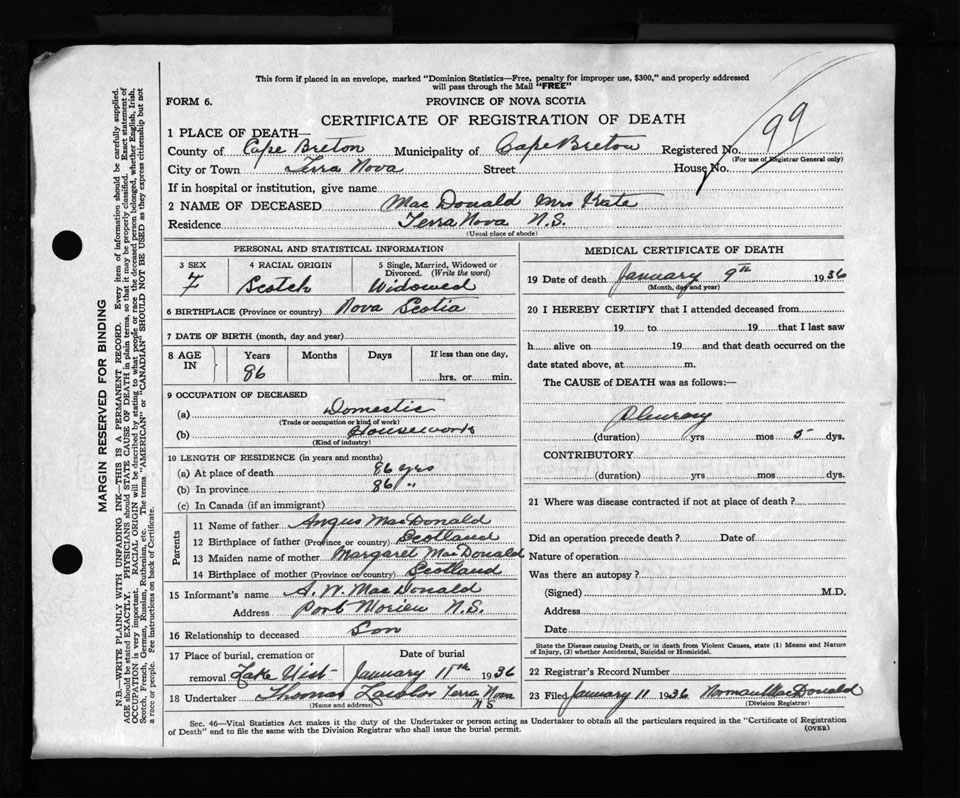 This form if placed in an envelope, marked "Dominion Statistics—Free, penalty for improper use, $300," and properly addressed
will pass through the Mail "FREE"
FORM 6.
PROVINCE OF NOVA SCOTIA
CERTIFICATE OF REGISTRATION OF DEATH
99
1 PLACE OF DEATH—
County of Cape Breton Municipality of Cape Breton Registered No.
(For use of Registrar General only)
City or Town Terra Nova Street House No.
If in hospital or institution, give name
2 NAME OF DECEASED MacDonald Mrs Kate
Residence Terra Nova N.S.
(Usual place of abode)
PERSONAL AND STATISTICAL INFORMATION
3 SEX 4 RACIAL ORIGIN 5 Single, Married, Widowed or
Divorced. (Write the word)
F Scotch Widowed
6 BIRTHPLACE (Province or country) Nova Scotia
7 DATE OF BIRTH (month, day and year)
8 AGE IN Years Months Days If less than one day,
86 hrs. or min.
9 OCCUPATION OF DECEASED
(a) Domestic
(Trade or occupation or kind of work)
(b) Housework
(Kind of industry)
10 LENGTH OF RESIDENCE (in years and months)
(a) At place of death 86 yrs
(b) In province 86 "
(c) In Canada (if an immigrant)
Parents
11 Name of father Angus MacDonald
12 Birthplace of father (Province or country) Scotland
13 Maiden name of mother Margaret MacDonald
14 Birthplace of mother (Province or country) Scotland
15 Informant's name A. W. MacDonald
Address Port Morien N.S.
16 Relationship to deceased Son
17 Place of burial, cremation or Date of burial
removal Lake Uist January 11th 1936
18 Undertaker Thomas Lawlor Terra Nova
NS
(Name and address)
MEDICAL CERTIFICATE OF DEATH
19 Date of death January 9th 1936
(Month, day and year)
20 I HEREBY CERTIFY that I attended deceased from
19 to 19 that I last saw
h alive on 19 and that death occurred on the
date stated above, at m.
The CAUSE of DEATH was as follows:—
Pleurasy
(duration) yrs mos 5 dys.
CONTRIBUTORY
(duration) yrs mos dys.
21 Where was disease contracted if not at place of death?
Did an operation precede death? Date of
Nature of operation
Was there an autopsy?
(Signed) M.D.
Address
Date
State the Disease causing Death, or in death from Violent Causes, state (1) Means and Nature
of Injury, (2) whether Accidental, Suicidal or Homicidal.
22 Registrar's Record Number
23 Filed January 11 1936 Norman MacDonald
(Division Registrar)
Sec. 46—Vital Statistics Act makes it the duty of the Undertaker or person acting as Undertaker to obtain all the particulars required in the "Certificate of Registration
of Death" and to file the same with the Division Registrar who shall issue the burial permit.
(OVER)
MARGIN RESERVED FOR BINDING
N.B.—WRITE PLAINLY WITH UNFADING INK—THIS IS A PERMANENT RECORD. Every item of information should be carefully supplied.
AGE should be stated EXACTLY. PHYSICIANS should STATE CAUSE OF DEATH in plain terms, so that it may be properly classified. Exact statement of
OCCUPATION is very important. RACIAL ORIGIN will be described by stating to what people or race the deceased person belonged, whether English, Irish,
Scotch, French, German, Russian, Ruthenian, etc. The terms "AMERICAN" or "CANADIAN" SHOULD NOT BE USED as they express citizenship but not
a race or people. See instructions on back of Certificate.